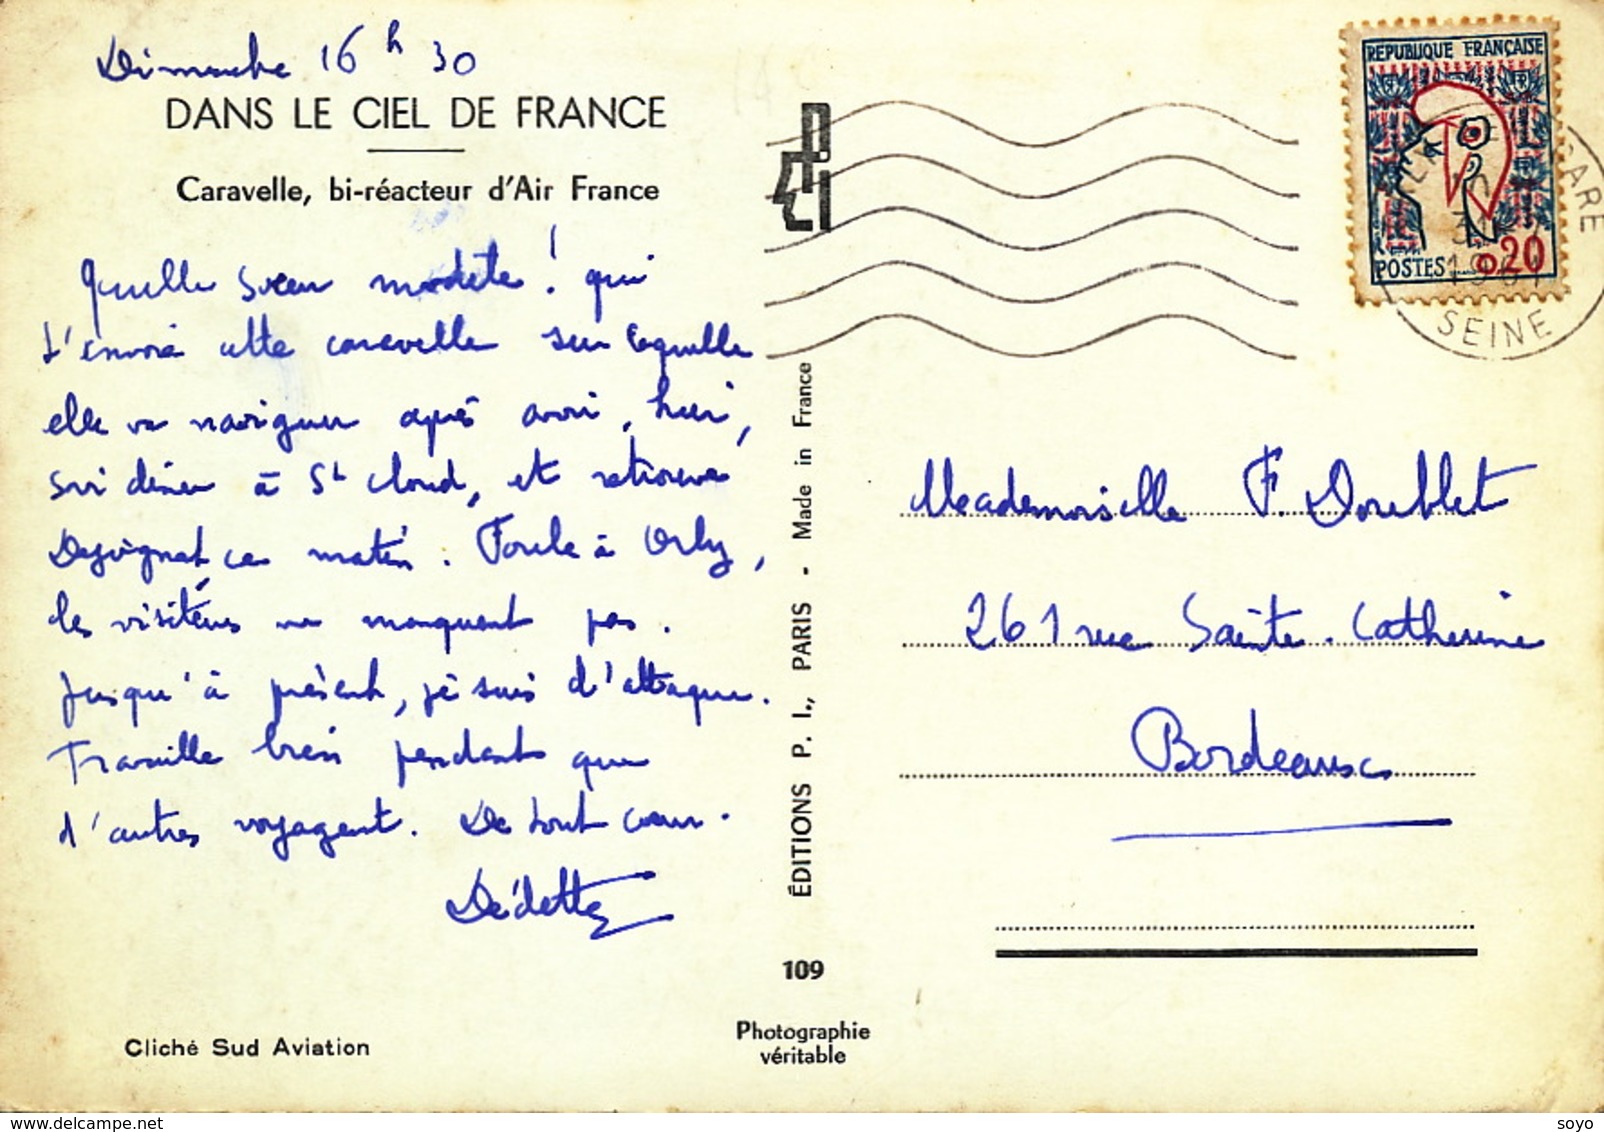 Dimanche 16 h 30
DANS LE CIEL DE FRANCE
Caravelle, bi-réacteur d'Air France
Quelle sœur modèle ! qui
t'envoie cette caravelle sur laquelle
elle va naviguer après avoir, hier,
suivi dîner à St Cloud, et retrouvé
ce matin. Foule à Orly,
les visiteurs ne manquent pas.
Jusqu'à présent, je suis d'attaque.
Travaille bien pendant que
d'autres voyagent. De tout cœur.
Dédette
Cliché Sud Aviation
ÉDITIONS P. I., PARIS - Made in France
109
Photographie
véritable
REPUBLIQUE FRANÇAISE
POSTES 0,20
GARE
SEINE
Mademoiselle F. Doublet
261 rue Sainte-Catherine
Bordeaux
delcampe.net
soyo